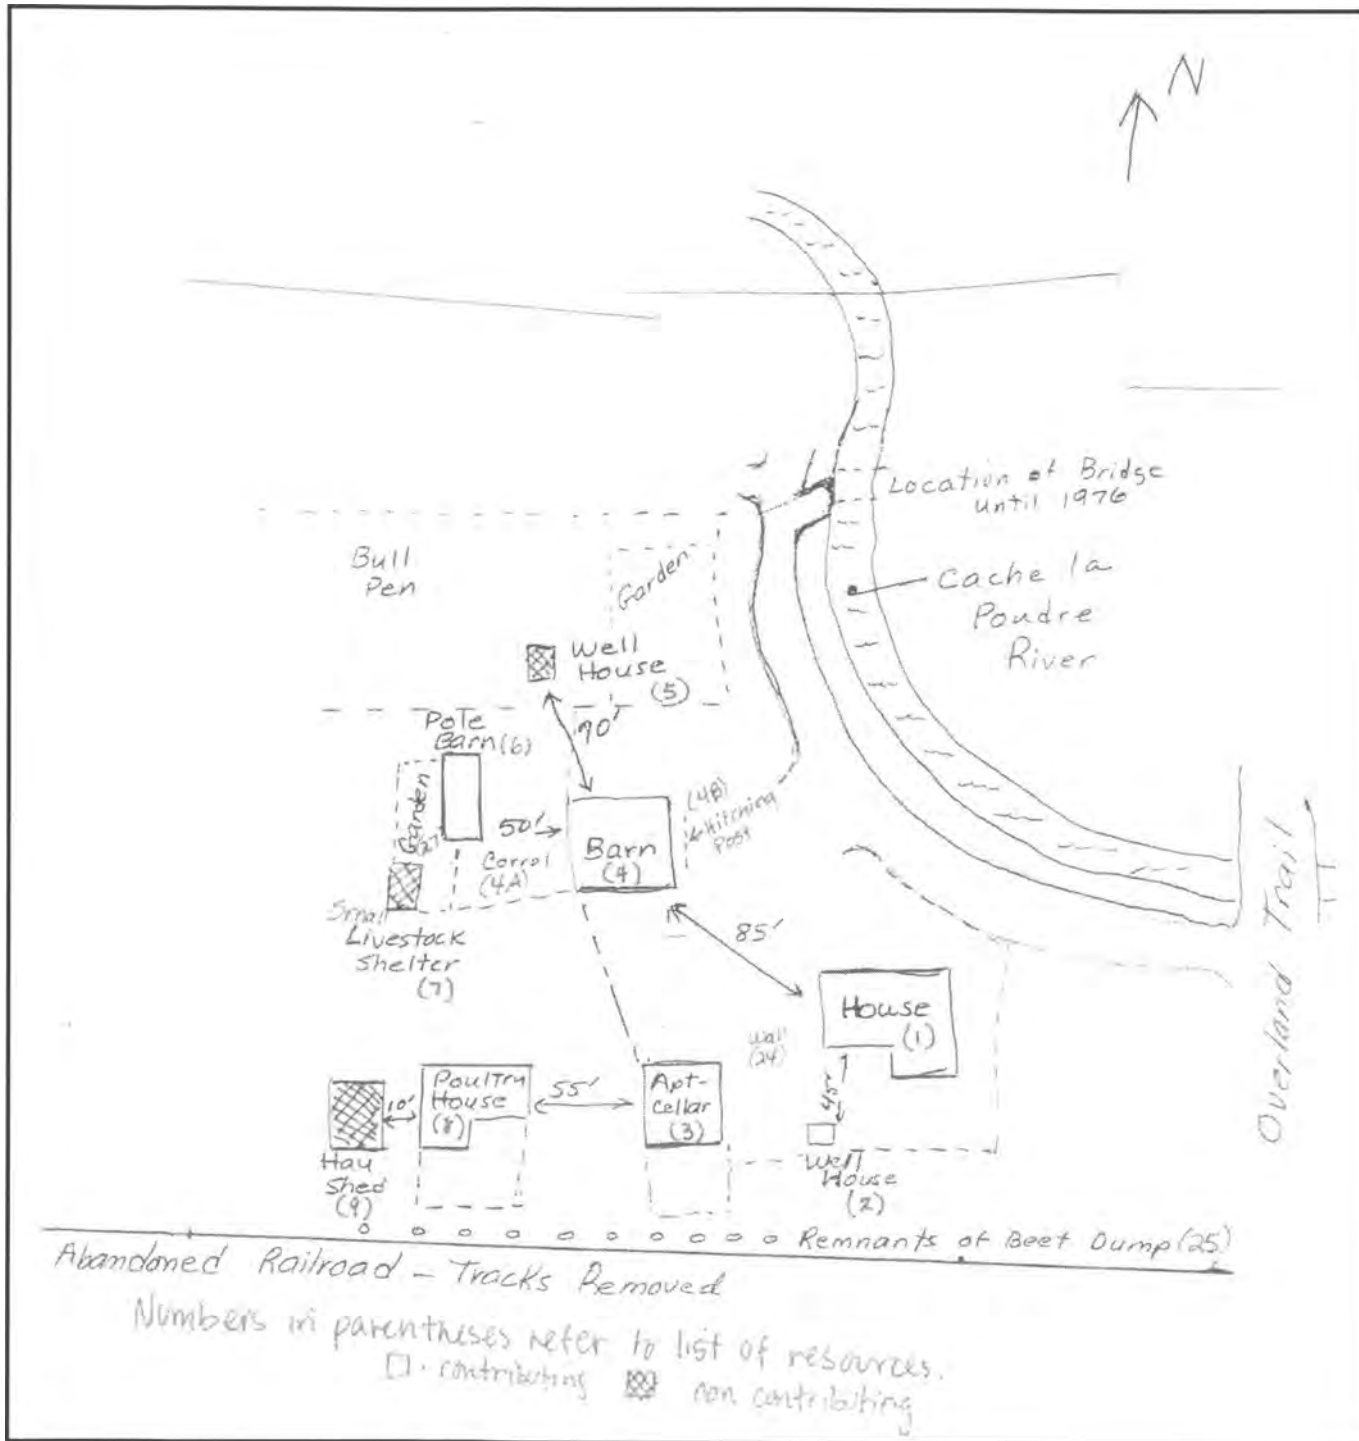 N
Location of Bridge
until 1976
Cache la
Poudre
River
Bull
Pen
Garden
Well
House
(5)
90'
Pole
Barn (6)
Garden
(27)
50'
Corral
(4A)
Barn
(4)
(4B)
Hitching
Post
Small
Livestock
Shelter
(7)
85'
House
(1)
Wall
(24)
45'
Well
House
(2)
Apt-
Cellar
(3)
55'
Poultry
House
(8)
10'
Hay
Shed
(9)
Overland Trail
Remnants of Beet Dump (25)
Abandoned Railroad - Tracks Removed
Numbers in parentheses refer to list of resources.
contributing non contributing